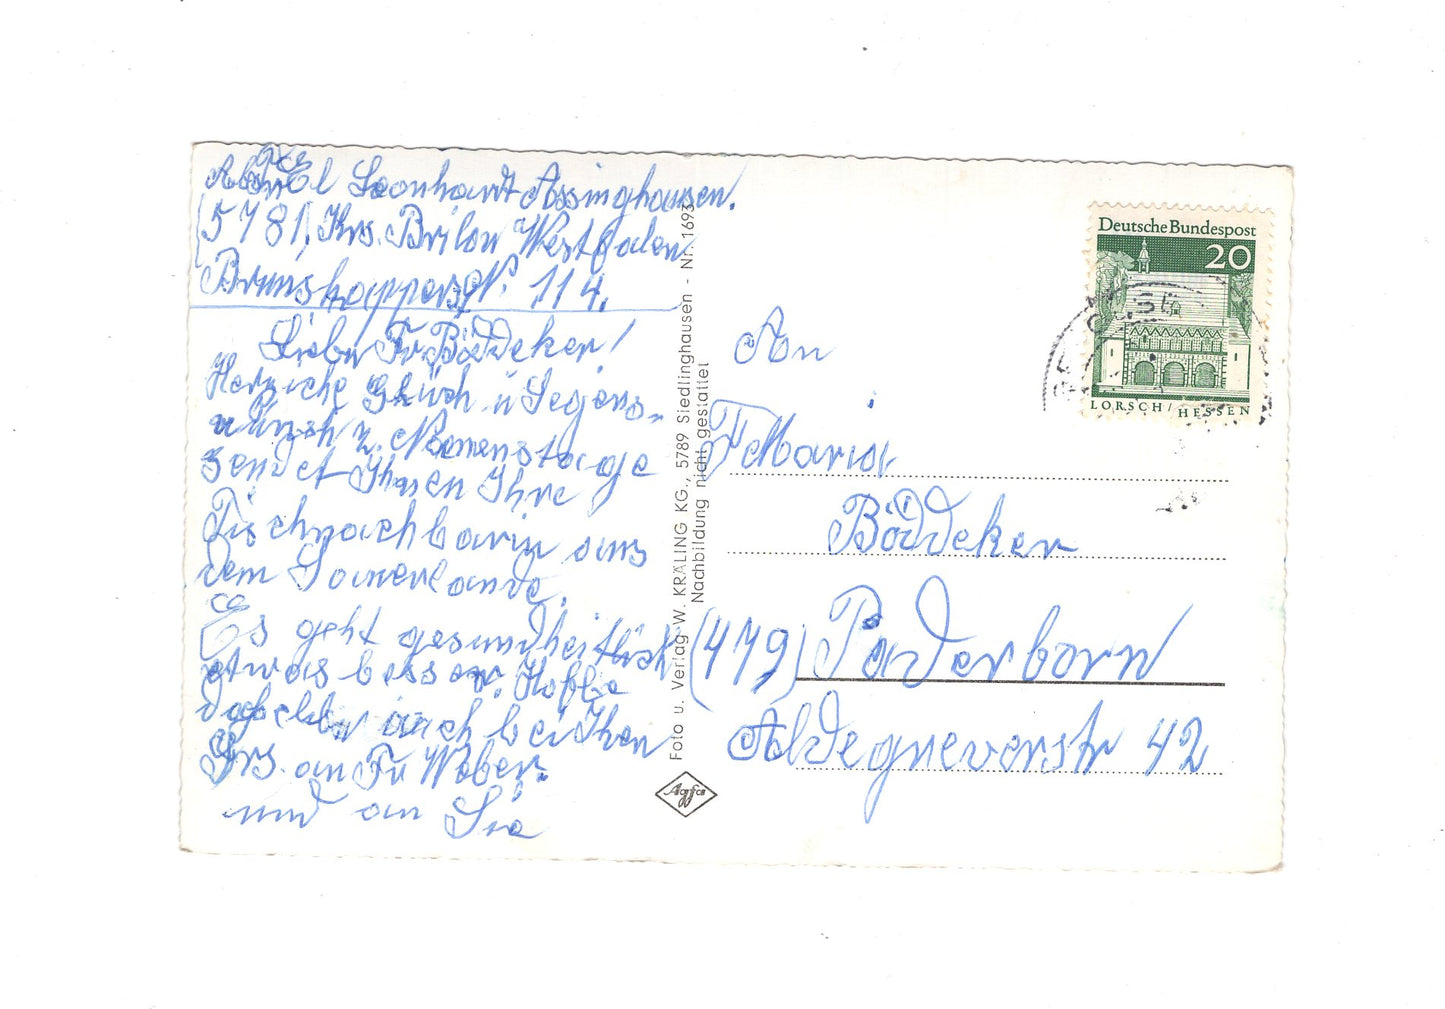 El Leonhardt Assinghausen.
(5781) Krs. Brilon Westfalen
Brunskapperstr. 114.
Liebe Fr. Böddeker!
Herzliche Glück u Segens-
wünsch z. Namenstage
sendet Ihnen Ihre
Tischnachbarin aus
dem Sauerlande.
Es geht gesundheitlich
etwas besser. Hoffe
auch bei Ihnen
Grs. an Fr Weber
und an Sie
Foto u. Verlag W. KRÄLING KG., 5789 Siedlinghausen - Nr. 1693
Nachbildung nicht gestattet
Agfa
Deutsche Bundespost
20
LORSCH / HESSEN
An
F Maria
Böddeker
(479) Paderborn
Aldegreverstr 42